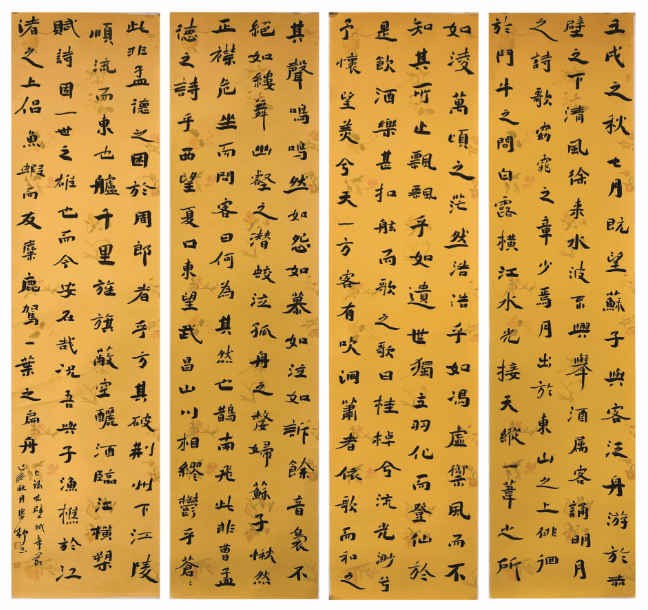 壬戌之秋七月既望蘇子與客泛舟游於赤
壁之下清風徐来水波不興舉酒属客誦明月
之詩歌窈窕之章少焉月出於東山之上徘徊
於鬥斗之間白露横江水光接天縱一葦之所
如淩萬頃之茫然浩浩乎如馮虚禦風而不
知其所止飄飄乎如遺世獨立羽化而登仙於
是飲酒樂甚扣舷而歌之歌曰桂棹兮流光渺兮
予懷望美兮天一方客有吹洞簫者依歌而和之
其聲嗚嗚然如怨如慕如泣如訴餘音裊不
絕如縷舞幽壑之潜蛟泣孤舟之嫠婦蘇子愀然
正襟危坐而問客曰何為其然也鵲南飛此非曹孟
德之詩乎西望夏口東望武昌山川相繆鬱乎蒼:
此非孟德之困於周郎者乎方其破荆州下江陵
順流而東也艫千里旌旗蔽空釃酒臨江横槊
賦詩固一世之雄也而今安在哉况吾與子漁樵於江
渚之上侣魚蝦而友麋鹿駕一葉之扁舟